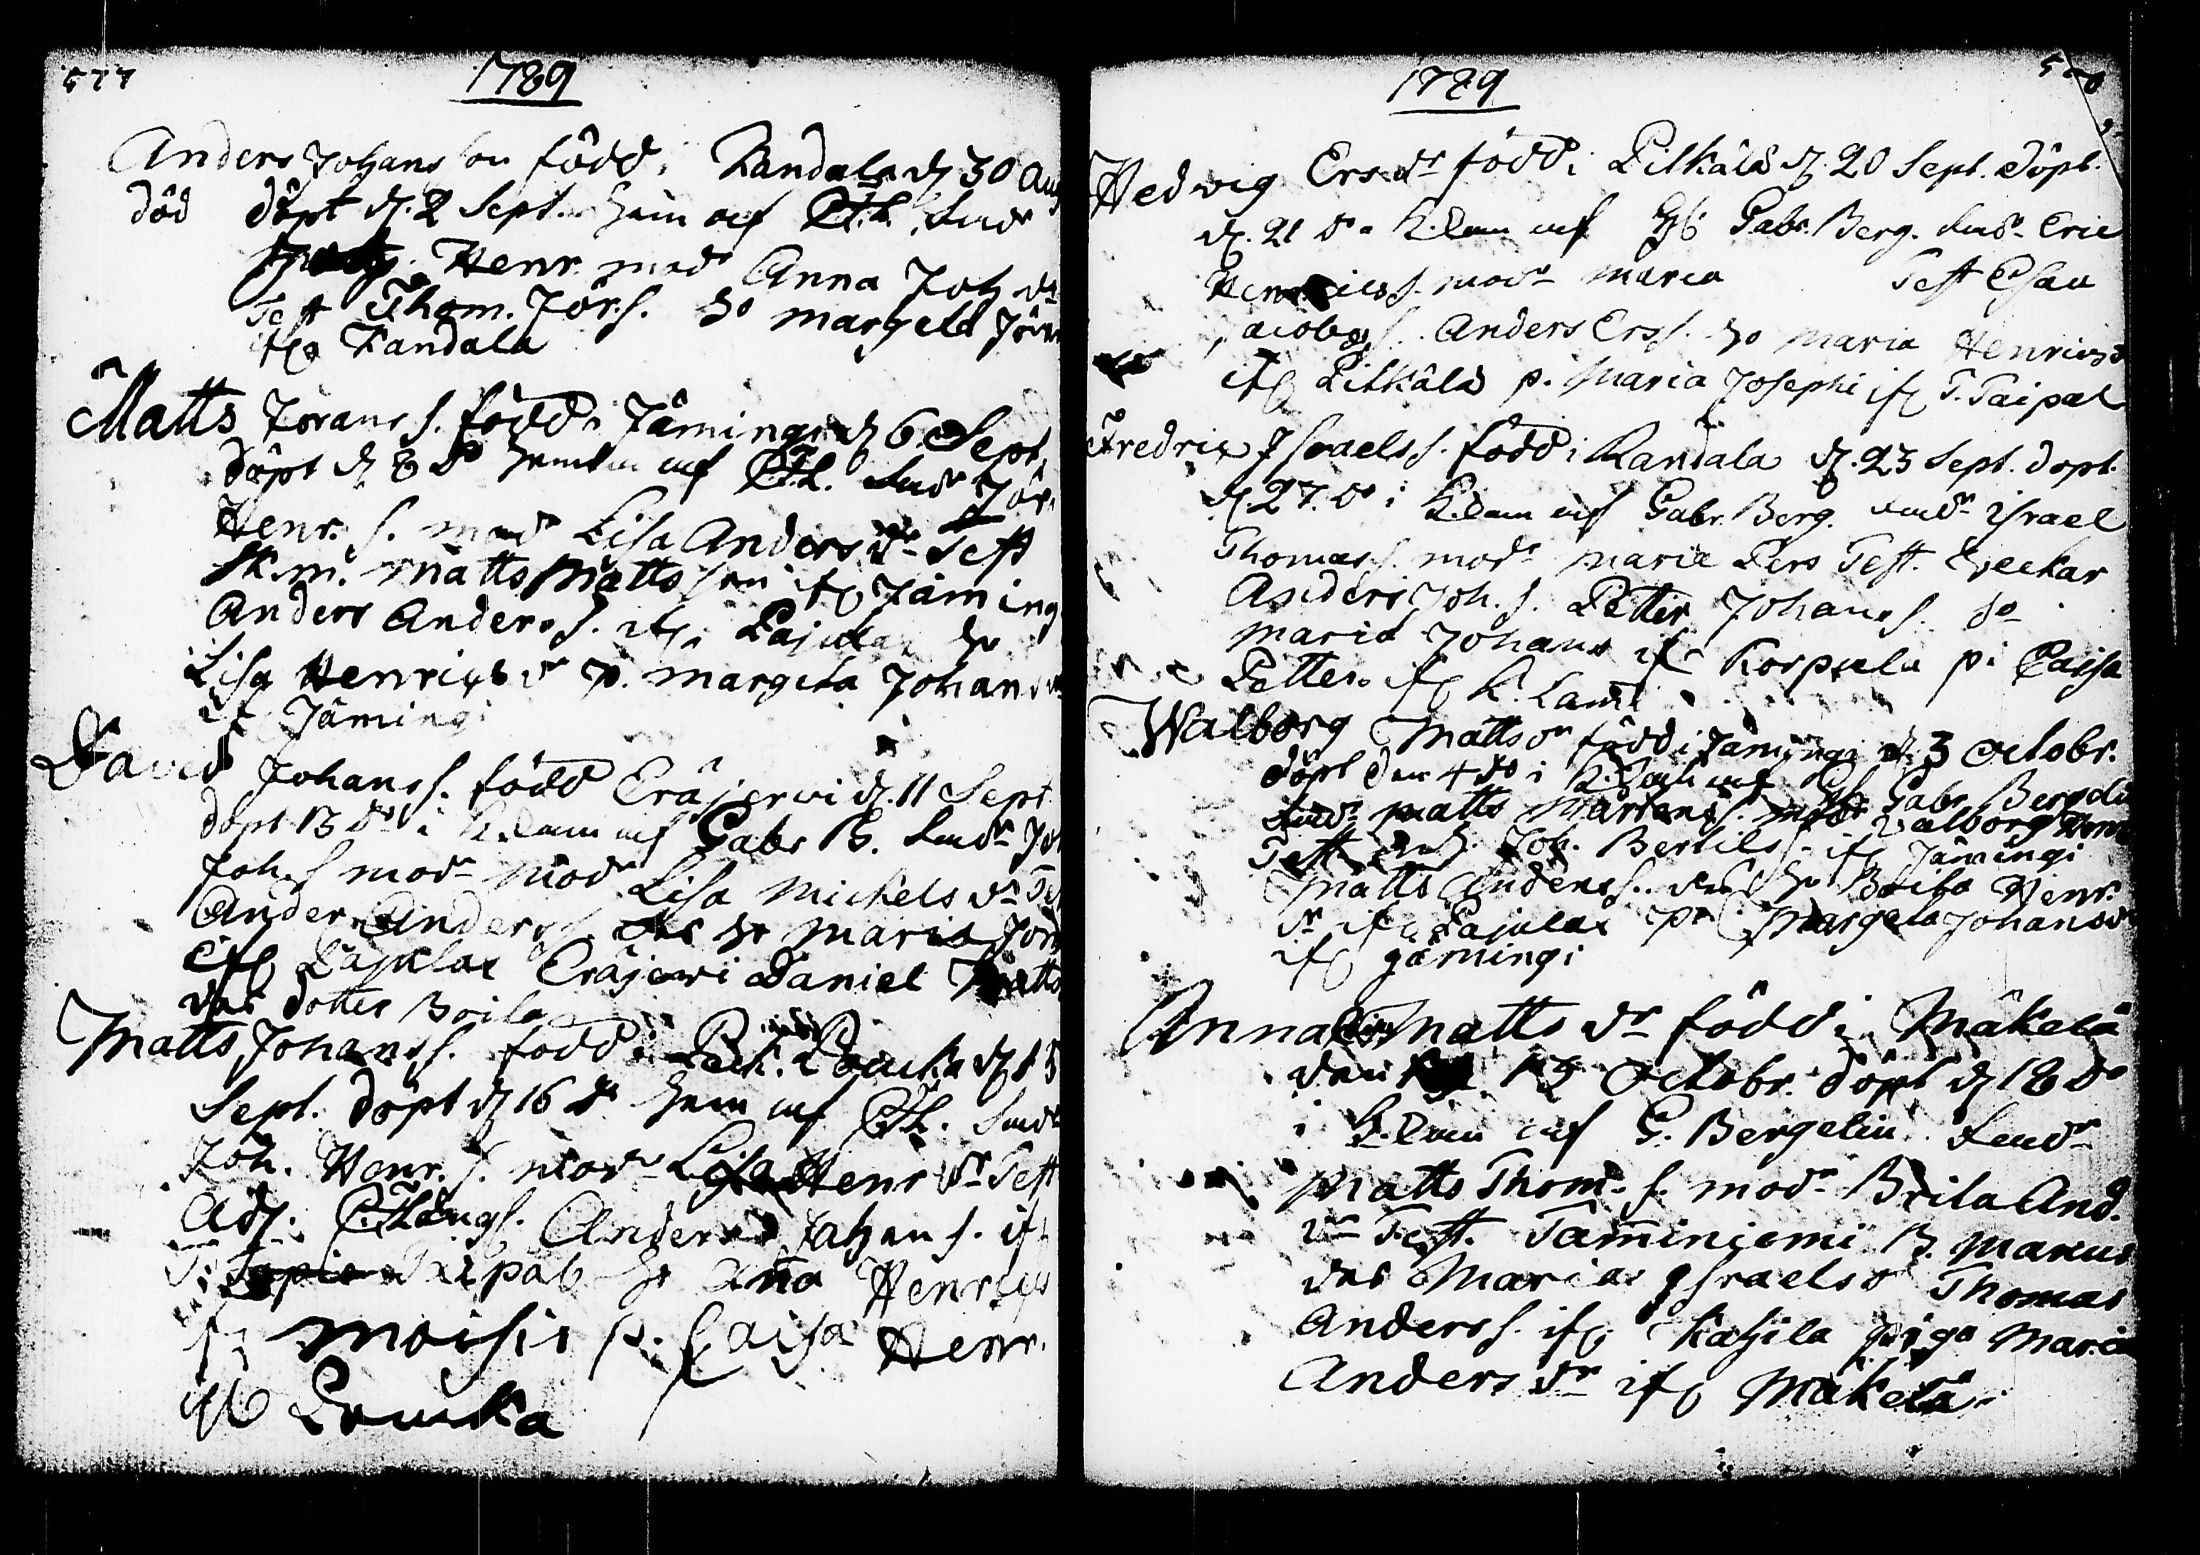 577
1789
Anders Johansson född i Kandala d. 30 Aug
död döpt d. 2 Sept. hem af C.H. fadr
Henr. modr Anna Joh dr
Test Thom. Jörs. h:o Margeta Jör
ifr Kandala
Matts Jörans s. född i Jämingi d. 6 Sept.
döpt d. 8 do hemma af C.H. fadr Jör.
Henr. s. modr Lisa Anders dr Test
Sk. m. Matts Mattsson ifr Jäming
Anders Anders s. ifr Pajulax h:o
Lisa Henrics dr p. Margeta Johans
ifr Jämingi
David Johans s. född Eräjerwi d. 11 Sept
döpt 13 do i K.lam af Gabr. B. fadr Joh
Joh. s modr modr Lisa Mickels dr Test
Anders Anders s. des h:o Maria Jör
ifr Pajulax Eräjerwi Daniel Matts
des dotter Brita
Matts Johans s. född i Peck. Pouka d. 15
Sept. döpt d. 16 do hem af C.H. fadr
Joh. Henr. s. modr Lisa Henr dr Test
Adj. C. Häng. Anders Johan s. ifr
T. Taipal h:o Anna Henrics
ifr Moisis p. Caisa Henr.
ifr Pouka
1789
Hedwig Ers dr född i Pitkälä d. 20 Sept. döpt
d. 21 do K.lam af Gabr. Berg. fadr Eric
Henrics s. modr Maria Test Esau
Jacobs s. Anders Ers s. h:o Maria Henrics d
ifr Pitkälä p. Maria Josephi ifr T. Taipal
Fredric Israels s. född i Kandala d. 23 Sept. döpt
d. 27. do i K.lam af Gabr. Berg. fadr Israel
Thomas s. modr Maria Pers Test.
Anders Joh. s. Petter Johans s. do
Maria Johans ifr Korpula pi Caisa
Petter. ifr K. Lam
Walborg Matts dr född i Jämingi d. 3 Octobr.
döpt den 4 do i K.lam af Gabr Bergeli
fadr Matts Mårtens s. modr Valborg Henr
Test Joh. Bertils s. ifr Jämingi
Matts Anders s. des h:o Brita Henr.
dr ifr Pajulax pi Margeta Johans dr
ifr Jämingi
Anna Matts dr född i Mäkelä
den 15 Octobr. döpt d. 18 do
i K.lam af G. Bergelin. fadr
Matts Thom. s. modr Brita And.
dr Test. Tamminiemi B. Marcus
des Maria Israels d Thomas
Anders s. ifr Kahila piga Maria
Anders dr ifr Mäkelä